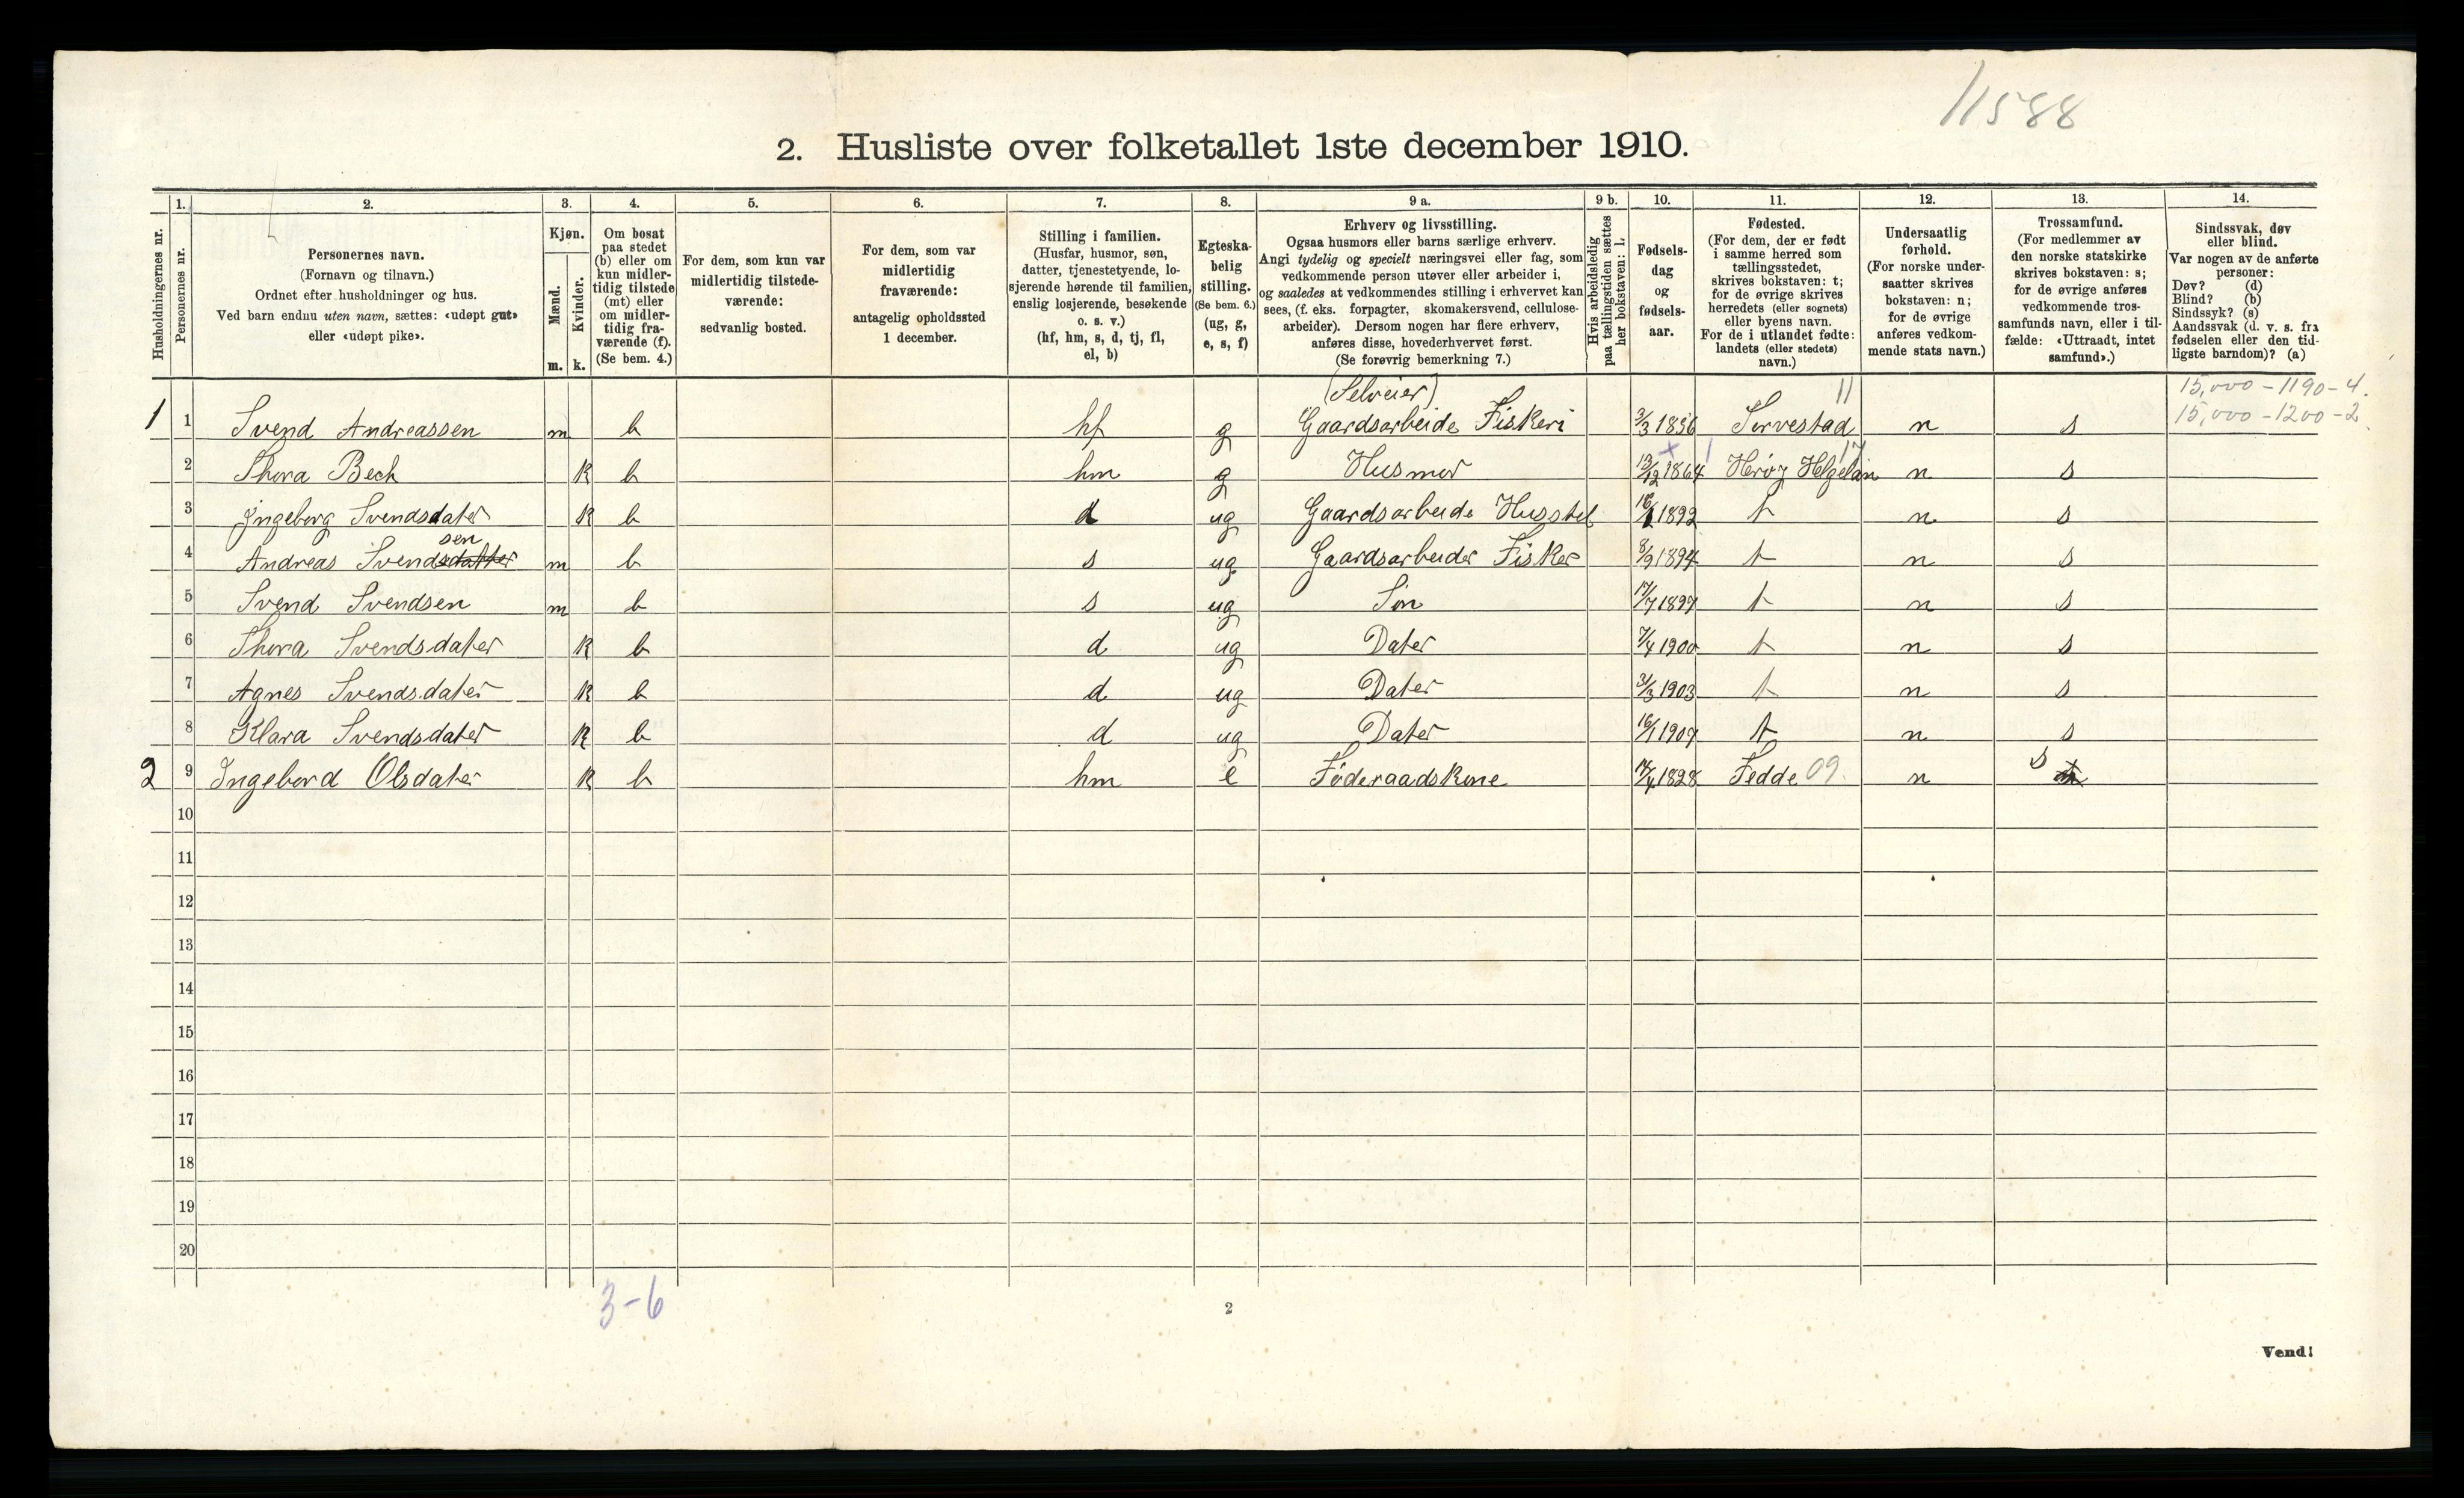 11588
2. Husliste over folketallet 1ste december 1910.
Husholdningernes nr.
1.
Personernes nr.
2.
Personernes navn.
(Fornavn og tilnavn.)
Ordnet efter husholdninger og hus.
Ved barn endnu uten navn, sættes: «udøpt gut»
eller «udøpt pike».
3.
Kjøn.
Mænd.
Kvinder.
m. k.
4.
Om bosat
paa stedet
(b) eller om
kun midler-
tidig tilstede
(mt) eller
om midler-
tidig fra-
værende (f).
(Se bem. 4.)
5.
For dem, som kun var
midlertidig tilstede-
værende:
sedvanlig bosted.
6.
For dem, som var
midlertidig
fraværende:
antagelig opholdssted
1 december.
7.
Stilling i familien.
(Husfar, husmor, søn,
datter, tjenestetyende, lo-
sjerende hørende til familien,
enslig losjerende, besøkende
o. s. v.)
(hf, hm, s, d, tj, fl,
el, b)
8.
Egteska-
belig
stilling.
(Se bem. 6.)
(ug, g,
e, s, f)
9 a.
Erhverv og livsstilling.
Ogsaa husmors eller barns særlige erhverv.
Angi tydelig og specielt næringsvei eller fag, som
vedkommende person utøver eller arbeider i,
og saaledes at vedkommendes stilling i erhvervet kan
sees, (f. eks. forpagter, skomakersvend, cellulose-
arbeider). Dersom nogen har flere erhverv,
anføres disse, hovederhvervet først.
(Se forøvrig bemerkning 7.)
9 b.
Hvis arbeidsledig
paa tællingstiden sættes
her bokstaven: l.
10.
Fødsels-
dag
og
fødsels-
aar.
11.
Fødested.
(For dem, der er født
i samme herred som
tællingsstedet,
skrives bokstaven: t;
for de øvrige skrives
herredets (eller sognets)
eller byens navn.
For de i utlandet fødte:
landets (eller stedets)
navn.)
12.
Undersaatlig
forhold.
(For norske under-
saatter skrives
bokstaven: n;
for de øvrige
anføres vedkom-
mende stats navn.)
13.
Trossamfund.
(For medlemmer av
den norske statskirke
skrives bokstaven: s;
for de øvrige anføres
vedkommende tros-
samfunds navn, eller i til-
fælde: «Uttraadt, intet
samfund».)
14.
Sindssvak, døv
eller blind.
Var nogen av de anførte
personer:
Døv? (d)
Blind? (b)
Sindssyk? (s)
Aandssvak (d. v. s. fra
fødselen eller den tid-
ligste barndom)? (a)
(Selveier) 11 15,000 - 1190 - 4.
1 1 Svend Andreassen m b hf g Gaardsarbeide Fiskeri 3/3 1856 Torvestad n s 15,000 - 1200 - 2.
17
2 Thora Bech k b hm g Husmor 13/12 1864 Herøy Helgelan n s
3 Ingeborg Svendsdater k b d ug Gaardsarbeide Husstel 1892 t n s
sen
4 Andreas Svendsdatter m b s ug Gaardsarbeider Fisker 8/9 1894 t n s
5 Svend Svendsen m b s ug Søn 17/7 1897 t n s
6 Thora Svendsdater k b d ug Dater 7/4 1900 t n s
7 Agnes Svendsdater k b d ug Dater 31/3 1903 t n s
8 Klara Svendsdater k b d ug Dater 16/1 1907 t n s
2 9 Ingebord Olsdater k b hm e Føderaadskone 1828 Fedde 09. n s
10
11
12
13
14
15
16
17
18
19
20
3-6
2
Vend!